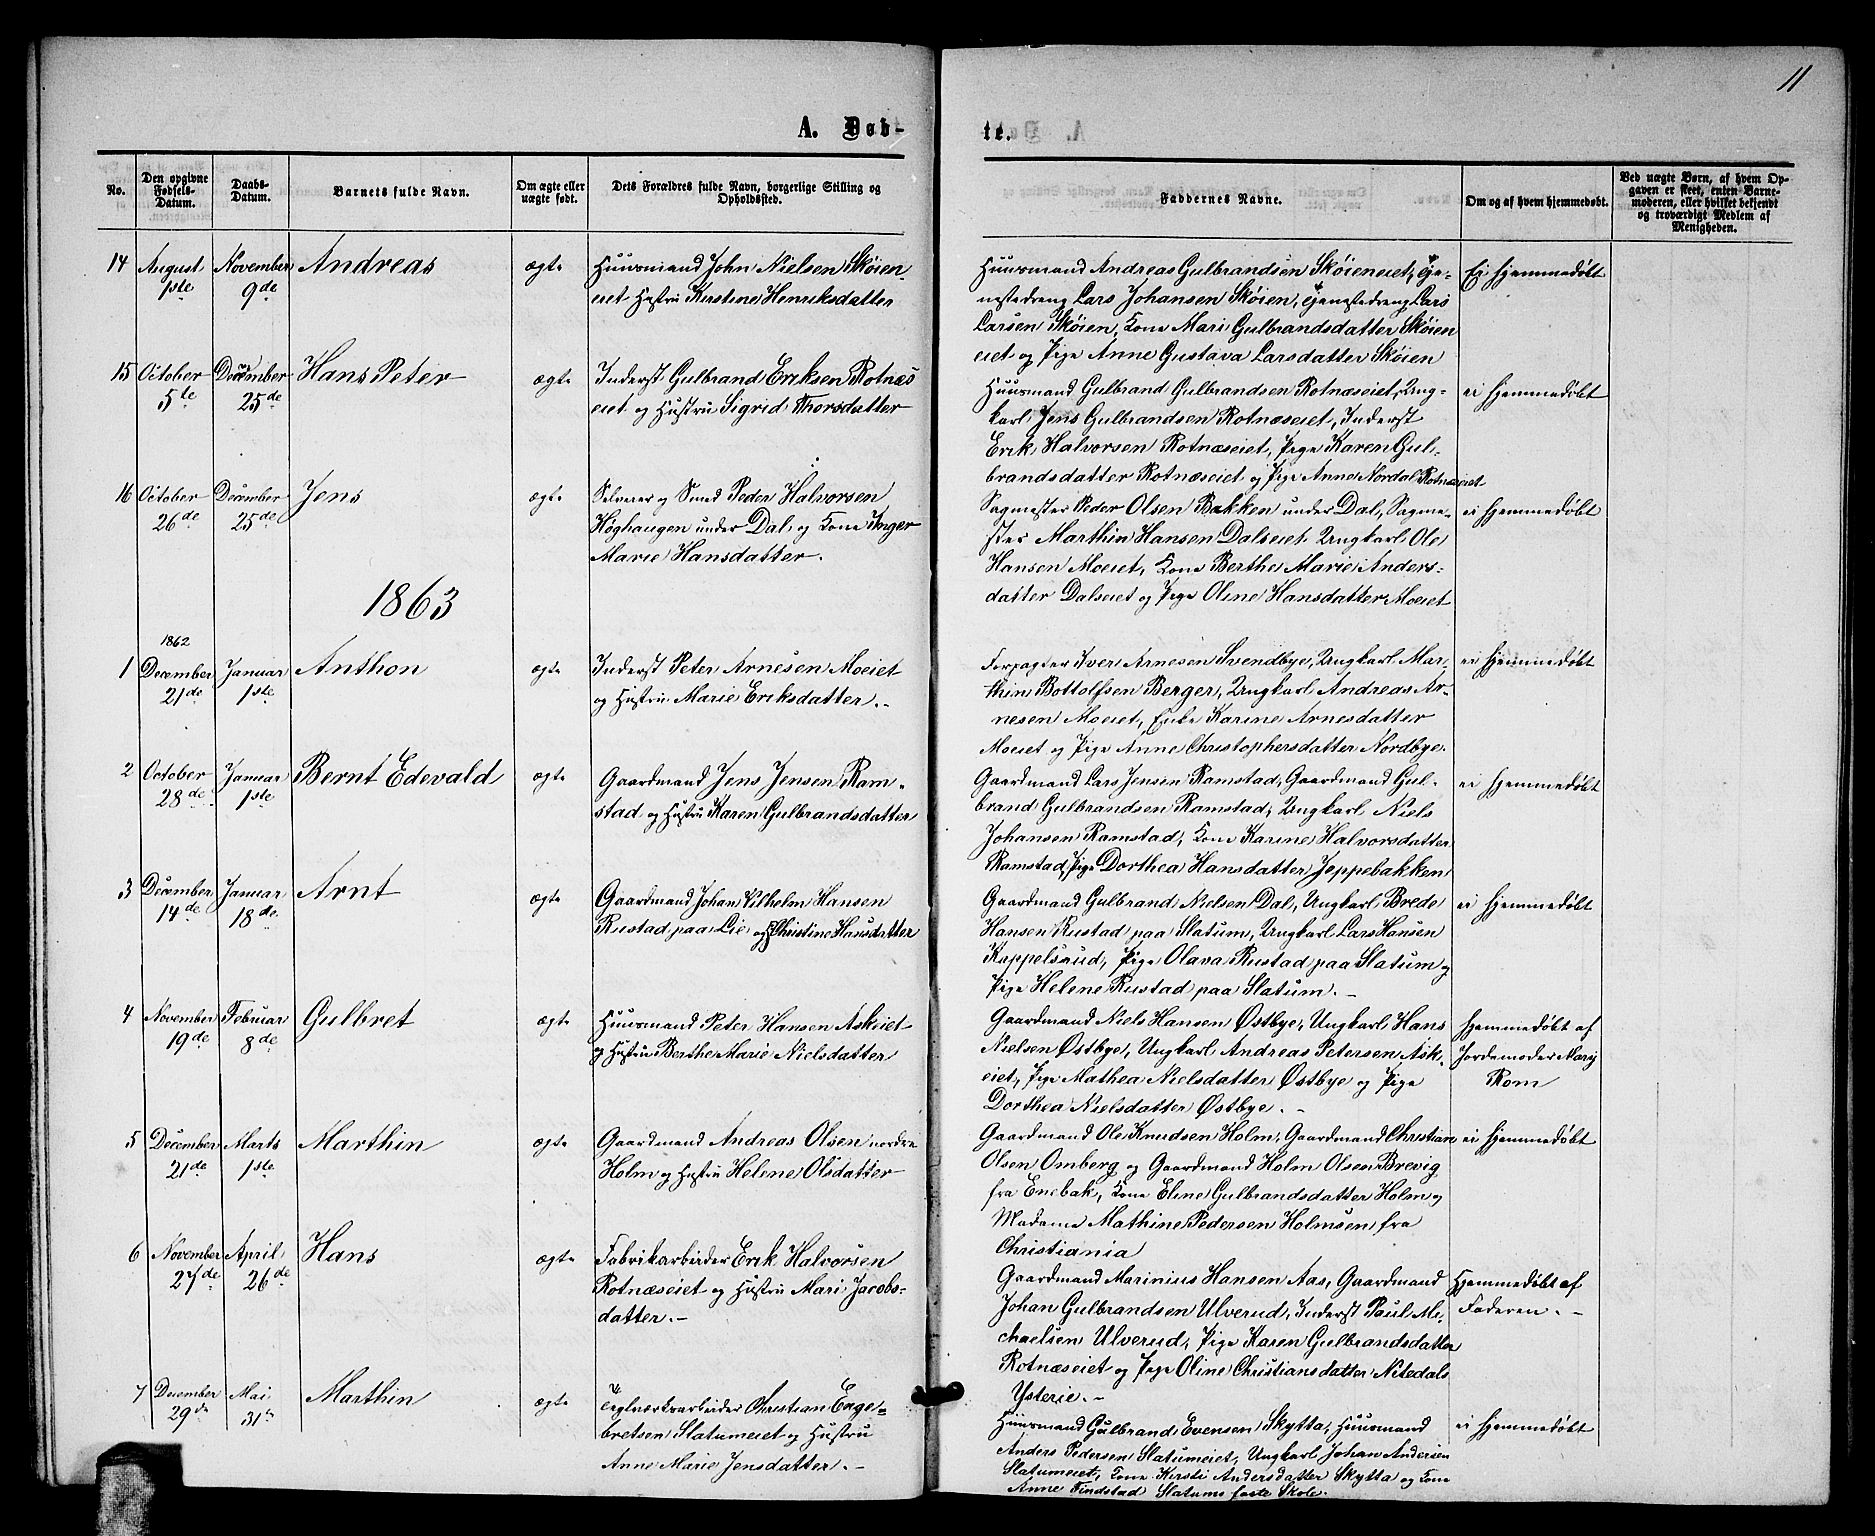 11
A. Døb-
te.
No.
Den opgivne Fødsels-Datum.
Daabs-Datum.
Barnets fulde Navn.
Om ægte eller uægte født.
Dets Forældres fulde Navn, borgerlige Stilling og Opholdssted.
Faddernes Navne.
Om og af hvem hjemmedøbt.
Ved uægte Børn, af hvem Opgaven er skeet, enten Barnemoderen, eller hvilket bekjendt og troværdigt Medlem af Menigheden.
14 August 1ste November 9de Andreas ægte
Huusmand John Nielsen Skøien-
eiet Hustru Kirstine Henriksdatter
Huusmand Andreas Gulbrandsen Skøieneiet, Tje-
nestedreng Lars Johansen Skøien, Tjenestedreng Lars
Larsen Skøien, Kone Mari Gulbrandsdatter Skøien
eiet og Pige Anne Gustava Larsdatter Skøien
Ei hjemmedøbt
15 October 5te December 25de Hans Peter ægte
Inderst Gulbrand Eriksen Rotnæs
eiet og Hustru Sigrid Thorsdatter
Huusmand Gulbrand Gulbrandsen Rotnæseiet, Ung-
karl Jens Gulbrandsen Rotnæseiet, Inderst
Erik Halvorsen Rotnæseiet, Pige Karen Gul-
brandsdatter Rotnæseiet og Pige Anne Nordal Rotnæseiet
ei hjemmedøbt
16 October 26de December 25de Jens ægte
Selveier og Smed Peder Halvorsen
Høghaugen under Dal, og Kone Inger
Marie Hansdatter.
Sagmester Peder Olsen Bakken under Dal, Sagme-
ster Marthin Hansen Dalseiet, Ungkarl Ole
Hansen Moeiet, Kone Berthe Marie Anders-
datter Dalseiet og Pige Oline Hansdatter Moeiet
ei hjemmedøbt
1863
1862
1 December 21de Januar 1ste Anthon ægte
Inderst Peter Arnesen Moeiet
og Hustru Marie Eriksdatter.-
Forpagter Iver Arnesen Svendbye, Ungkarl Mar-
thin Bottolfsen Berger, Ungkarl Andreas Ar-
nesen Moeiet, Enke Karine Arnesdatter
Moeiet og Pige Anne Christophersdatter Nordbye.
ei hjemmedøbt
2 October 28de Januar 1ste Bernt Edevald ægte
Gaardmand Jens Jensen Ram-
stad og Hustru Karen Gulbrandsdatter
Gaardmand Lars Jensen Ramstad, Gaardmand Gul-
brand Gulbrandsen Ramstad, Ungkarl Niels
Johansen Ramstad, Kone Karine Halvorsdatter
Ramstad, Pige Dorthea Hansdatter Jeppebakken
ei hjemmedøbt
3 December 14de Januar 18de. Arnt ægte
Gaardmand Johan Vilhelm Hansen
Rustad paa Lie og Christine Hansdatter
Gaardmand Gulbrand Nielsen Dal, Ungkarl Brede
Hansen Rustad paa Slatum, Ungkarl Lars Hansen
Kappelsrud, Pige Olava Rustad paa Slatum og
Pige Helene Rustad paa Slatum.-
ei hjemmedøbt
4 November 19de Februar 8de Gulbret ægte
Huusmand Peter Hansen Askeiet
og Hustru Berthe Marie Nielsdatter
Gaardmand Niels Hansen Østbye, Ungkarl Hans
Nielsen Østbye, Ungkarl Andreas Petersen Ask-
eiet, Pige Mathea Nielsdatter Østbye og Pige
Dorthea Nielsdatter Østbye.-
Hjemmedøbt af
Jordemoder Mary
Rom
5 December 21de Marts 1ste Marthin ægte
Gaardmand Andreas Olsen nordre
Holm og Hustru Helene Olsdatter
Gaardmand Ole Knudsen Holm, Gaardmand Christian
Olsen Omberg og Gaardmand Holm Olsen Brevig
fra Enebak, Kone Eline Gulbrandsdatter Holm og
Madame Mathine Pedersen Holmsen fra
Christiania
ei hjemmedøbt
6 November 27de April 26de Hans ægte
Fabrikarbeider Erik Halvorsen
Rotnæseiet og Hustru Mari Jacobs-
datter.-
Gaardmand Marinius Hansen Aas, Gaardmand
Johan Gulbrandsen Ulverud, Inderst Paul Mi-
chaelsen Ulverud, Pige Karen Gulbrandsdatter
Rotnæseiet og Pige Oline Christiansdatter Nitedals
Ysterie.-
Hjemmedøbt af
Faderen.-
7 December 29de Mai 31te Marthin ægte
Teglværksarbeider Christian Enge-
bretsen Slatumeiet og Hustru
Anne Marie Jensdatter.-
Huusmand Gulbrand Evensen Skytta, Huusmand
Anders Pedersen Slatumeiet, Ungkarl Johan Andersen
Slatumeiet, Kone Kirsti Andersdatter Skytta og Kone
Anne Findstad Slatums faste Skole.
ei hjemmedøbt